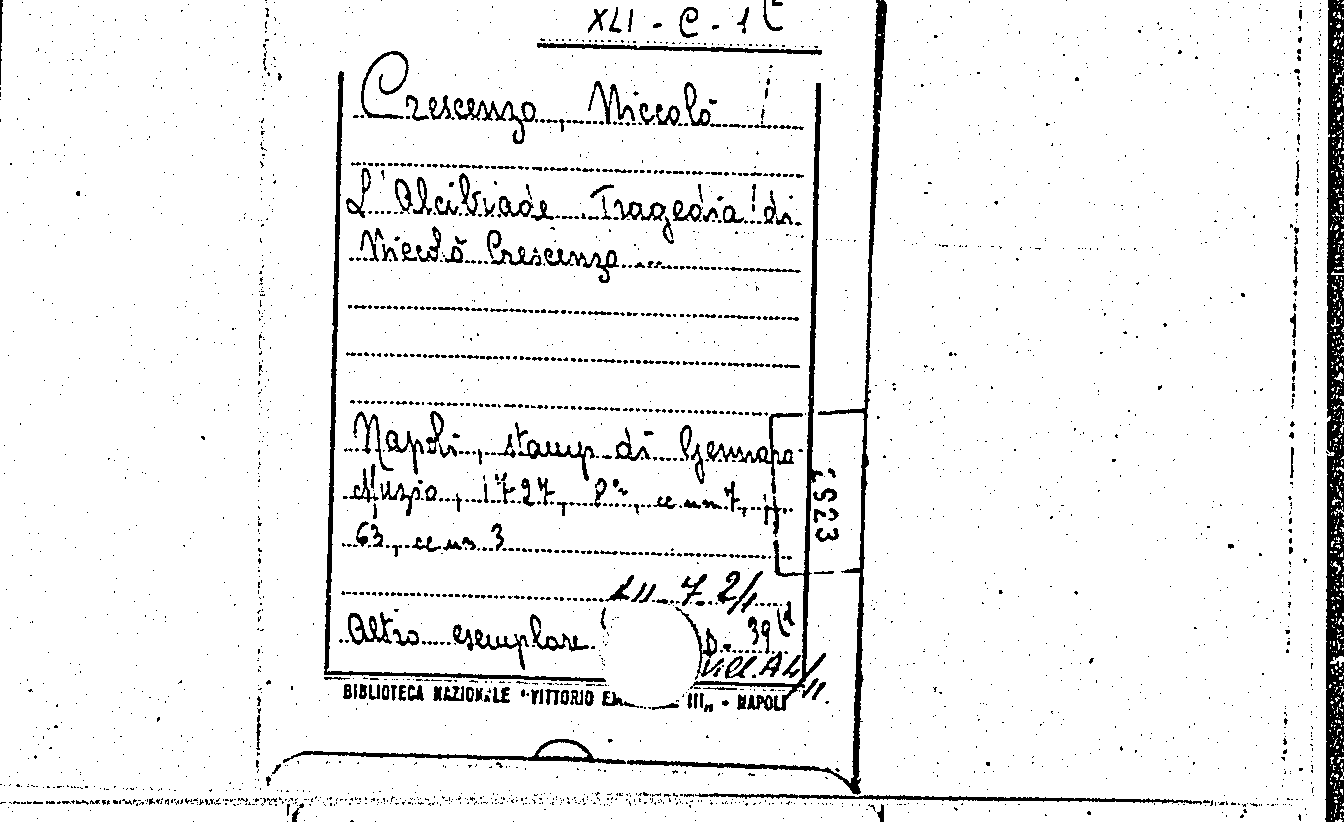 XLI - C - 1
Crescenzo, Niccolò
L'Alcibiade Tragedia di
Niccolò Crescenzo ...
Napoli, stamp. di Gennaro
Muzio, 1727, 8°, cc nn 7, pp.
63, cc nn 3
2923
LII - 7 - 2/1
Altro esemplare D - 39
Vill. A
BIBLIOTECA NAZIONALE "VITTORIO III„ - NAPOLI